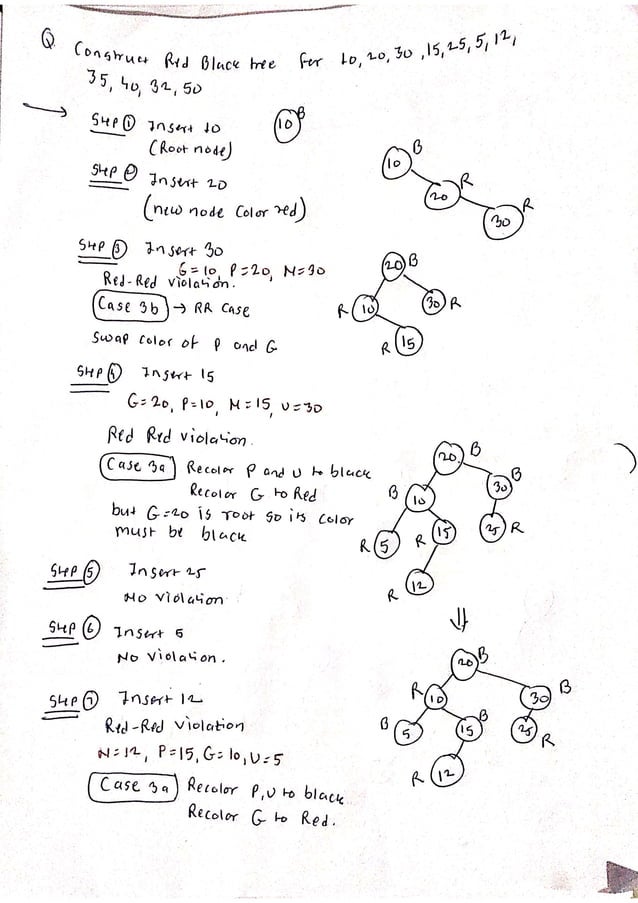 Q Construct Red Black tree for 10, 20, 30, 15, 25, 5, 12,
35, 40, 32, 50
Step ① Insert 10
(Root node)
10 B
Step ② Insert 20
(new node Color red)
10 B
20 R
30 R
Step ③ Insert 30
G=10, P=20, N=30
Red-Red violation.
Case 3b → RR Case
Swap color of P and G
20 B
R 10
30 R
R 15
Step ④ Insert 15
G=20, P=10, N=15, U=30
Red Red violation.
Case 3a Recolor P and U to black
Recolor G to Red
but G=20 is root so its color
must be black
20 B
B 10
30 B
R 5
R 15
25 R
R 12
Step ⑤ Insert 25
No violation
Step ⑥ Insert 5
No violation.
Step ⑦ Insert 12
Red-Red violation
N=12, P=15, G=10, U=5
Case 3a Recolor P, U to black
Recolor G to Red.
⇓
20 B
R 10
30 B
B 5
15 B
25 R
R 12